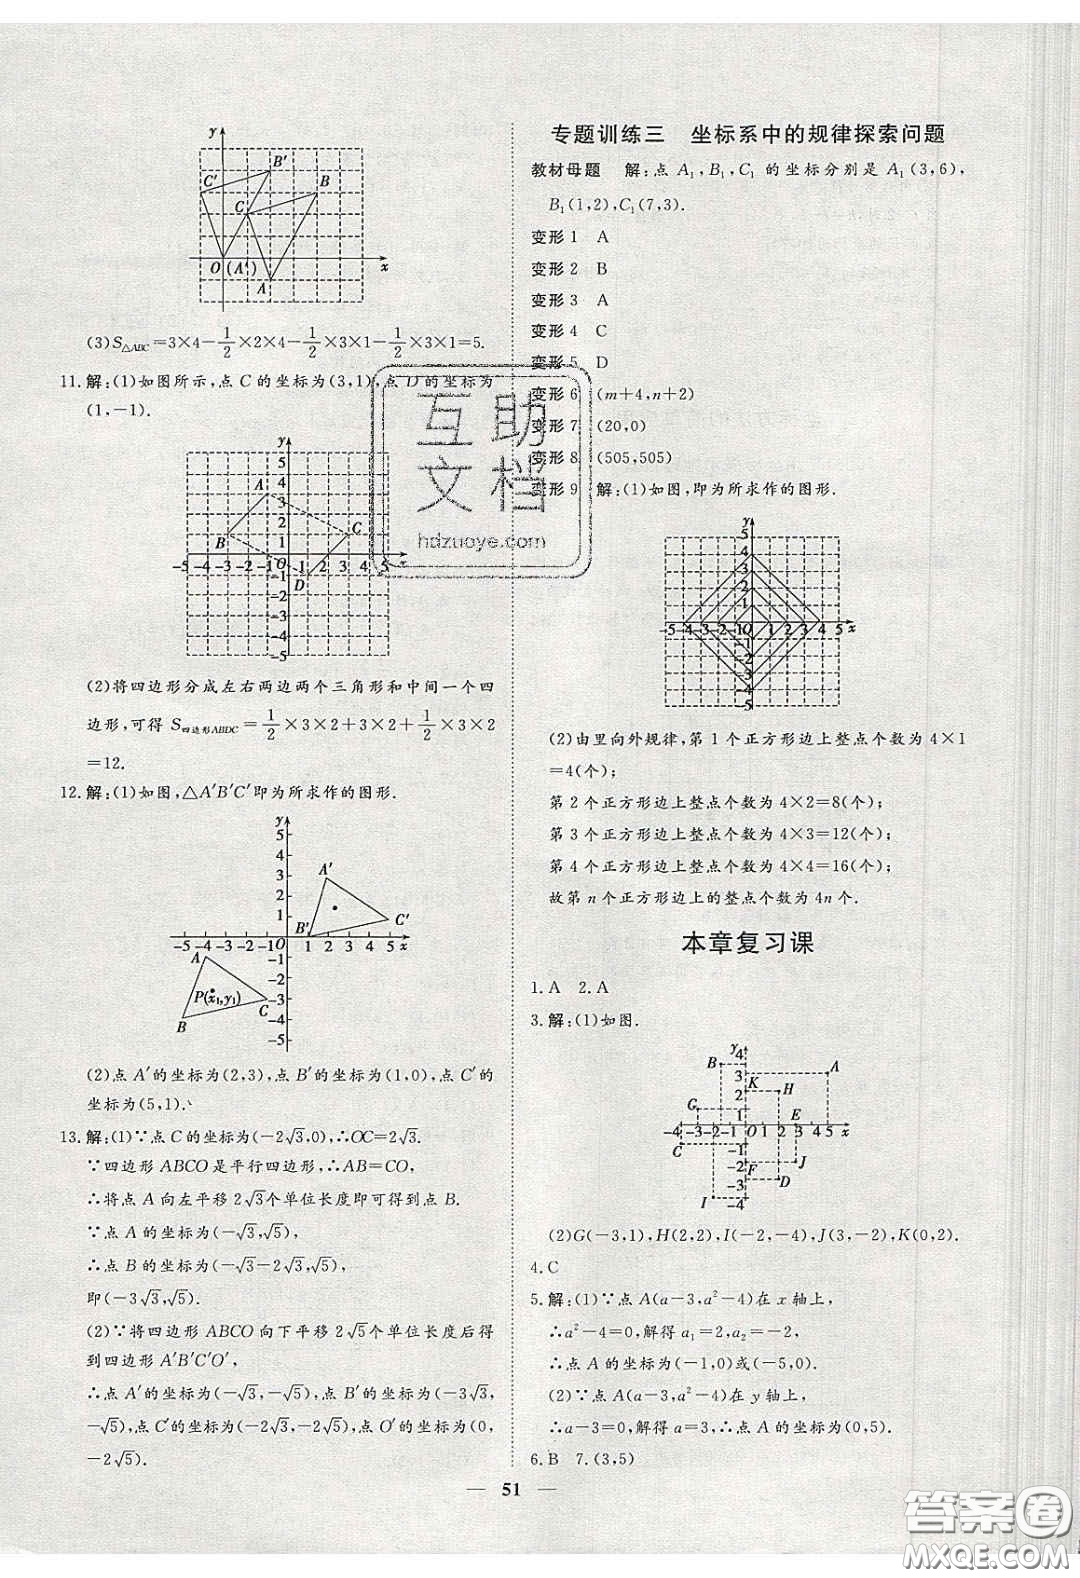 (3)S△ABC=3×4−1/2×2×4−1/2×3×1−1/2×3×1=5.
11.解:(1)如图所示,点C的坐标为(3,1),点D的坐标为
(1,−1).
(2)将四边形分成左右两边两个三角形和中间一个四
边形,可得S四边形ABDC=1/2×3×2+3×2+1/2×3×2
=12.
12.解:(1)如图,△A′B′C′即为所求作的图形.
P(x₁,y₁)
(2)点A′的坐标为(2,3),点B′的坐标为(1,0),点C′的
坐标为(5,1).
13.解:(1)∵点C的坐标为(−2√3,0),∴OC=2√3.
∵四边形ABCO是平行四边形,∴AB=CO,
∴将点A向左平移2√3个单位长度即可得到点B.
∵点A的坐标为(−√3,√5),
∴点B的坐标为(−√3−2√3,√5),
即(−3√3,√5).
(2)∵将四边形ABCO向下平移2√5个单位长度后得
到四边形A′B′C′O′,
∴点A′的坐标为(−√3,−√5),点B′的坐标为(−3√3,
−√5),点C′的坐标为(−2√3,−2√5),点O′的坐标为(0,
−2√5).
专题训练三 坐标系中的规律探索问题
教材母题 解:点A₁,B₁,C₁的坐标分别是A₁(3,6),
B₁(1,2),C₁(7,3).
变形1 A
变形2 B
变形3 A
变形4 C
变形5 D
变形6 (m+4,n+2)
变形7 (20,0)
变形8 (505,505)
变形9 解:(1)如图,即为所求作的图形.
(2)由里向外规律,第1个正方形边上整点个数为4×1
=4(个);
第2个正方形边上整点个数为4×2=8(个);
第3个正方形边上整点个数为4×3=12(个);
第4个正方形边上整点个数为4×4=16(个);
故第n个正方形边上的整点个数为4n个.
本章复习课
1.A 2.A
3.解:(1)如图.
(2)G(−3,1),H(2,2),I(−2,−4),J(3,−2),K(0,2).
4.C
5.解:(1)∵点A(a−3,a²−4)在x轴上,
∴a²−4=0,解得a₁=2,a₂=−2,
∴点A的坐标为(−1,0)或(−5,0).
(2)∵点A(a−3,a²−4)在y轴上,
∴a−3=0,解得a=3,∴点A的坐标为(0,5).
6.B 7.(3,5)
51
互助
文档
hdzuoye.com
答案圈
MXQE.COM